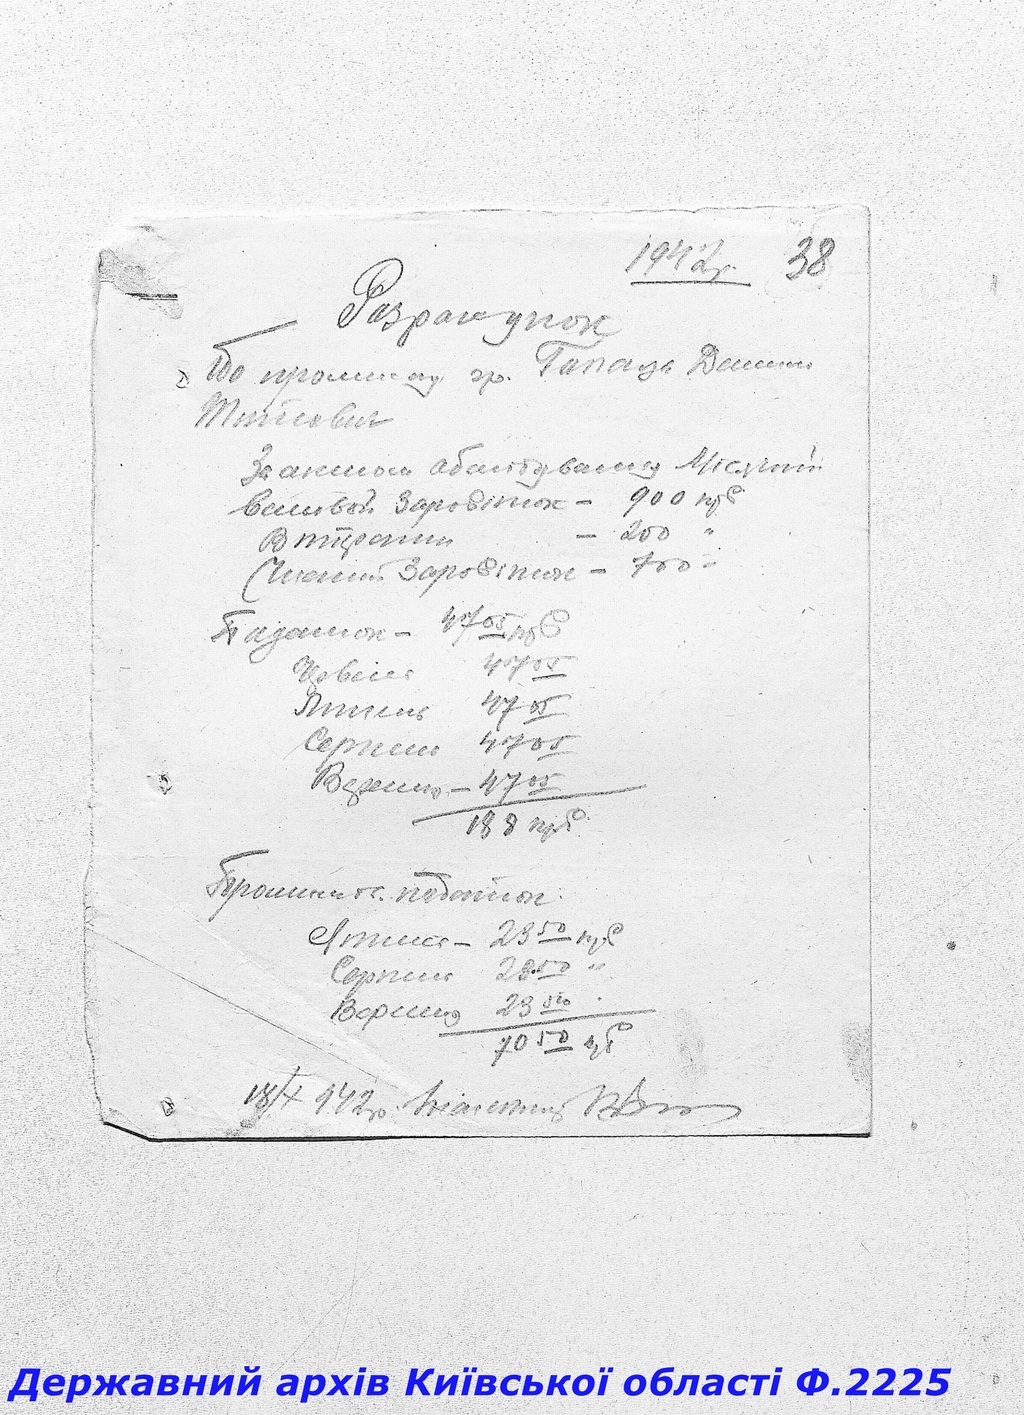 1942р. 38
Розрахунок
До промислу гр. Гапаца Данила
Титович
За актом обслідування Місячний
валовой Заробіток – 900 крб
Втрати – 200 "
Чистий Заробіток – 700 –
Податок – 47 05 крб
Червень 47 05
Липень 47 05
Серпень 47 05
Вересень – 47 05
188 крб
податок
Липень – 23 50 крб
Серпень 23.50 "
Вересень 23 50 "
70 50 крб
18/X 942р.
Державний архів Київської області Ф.2225